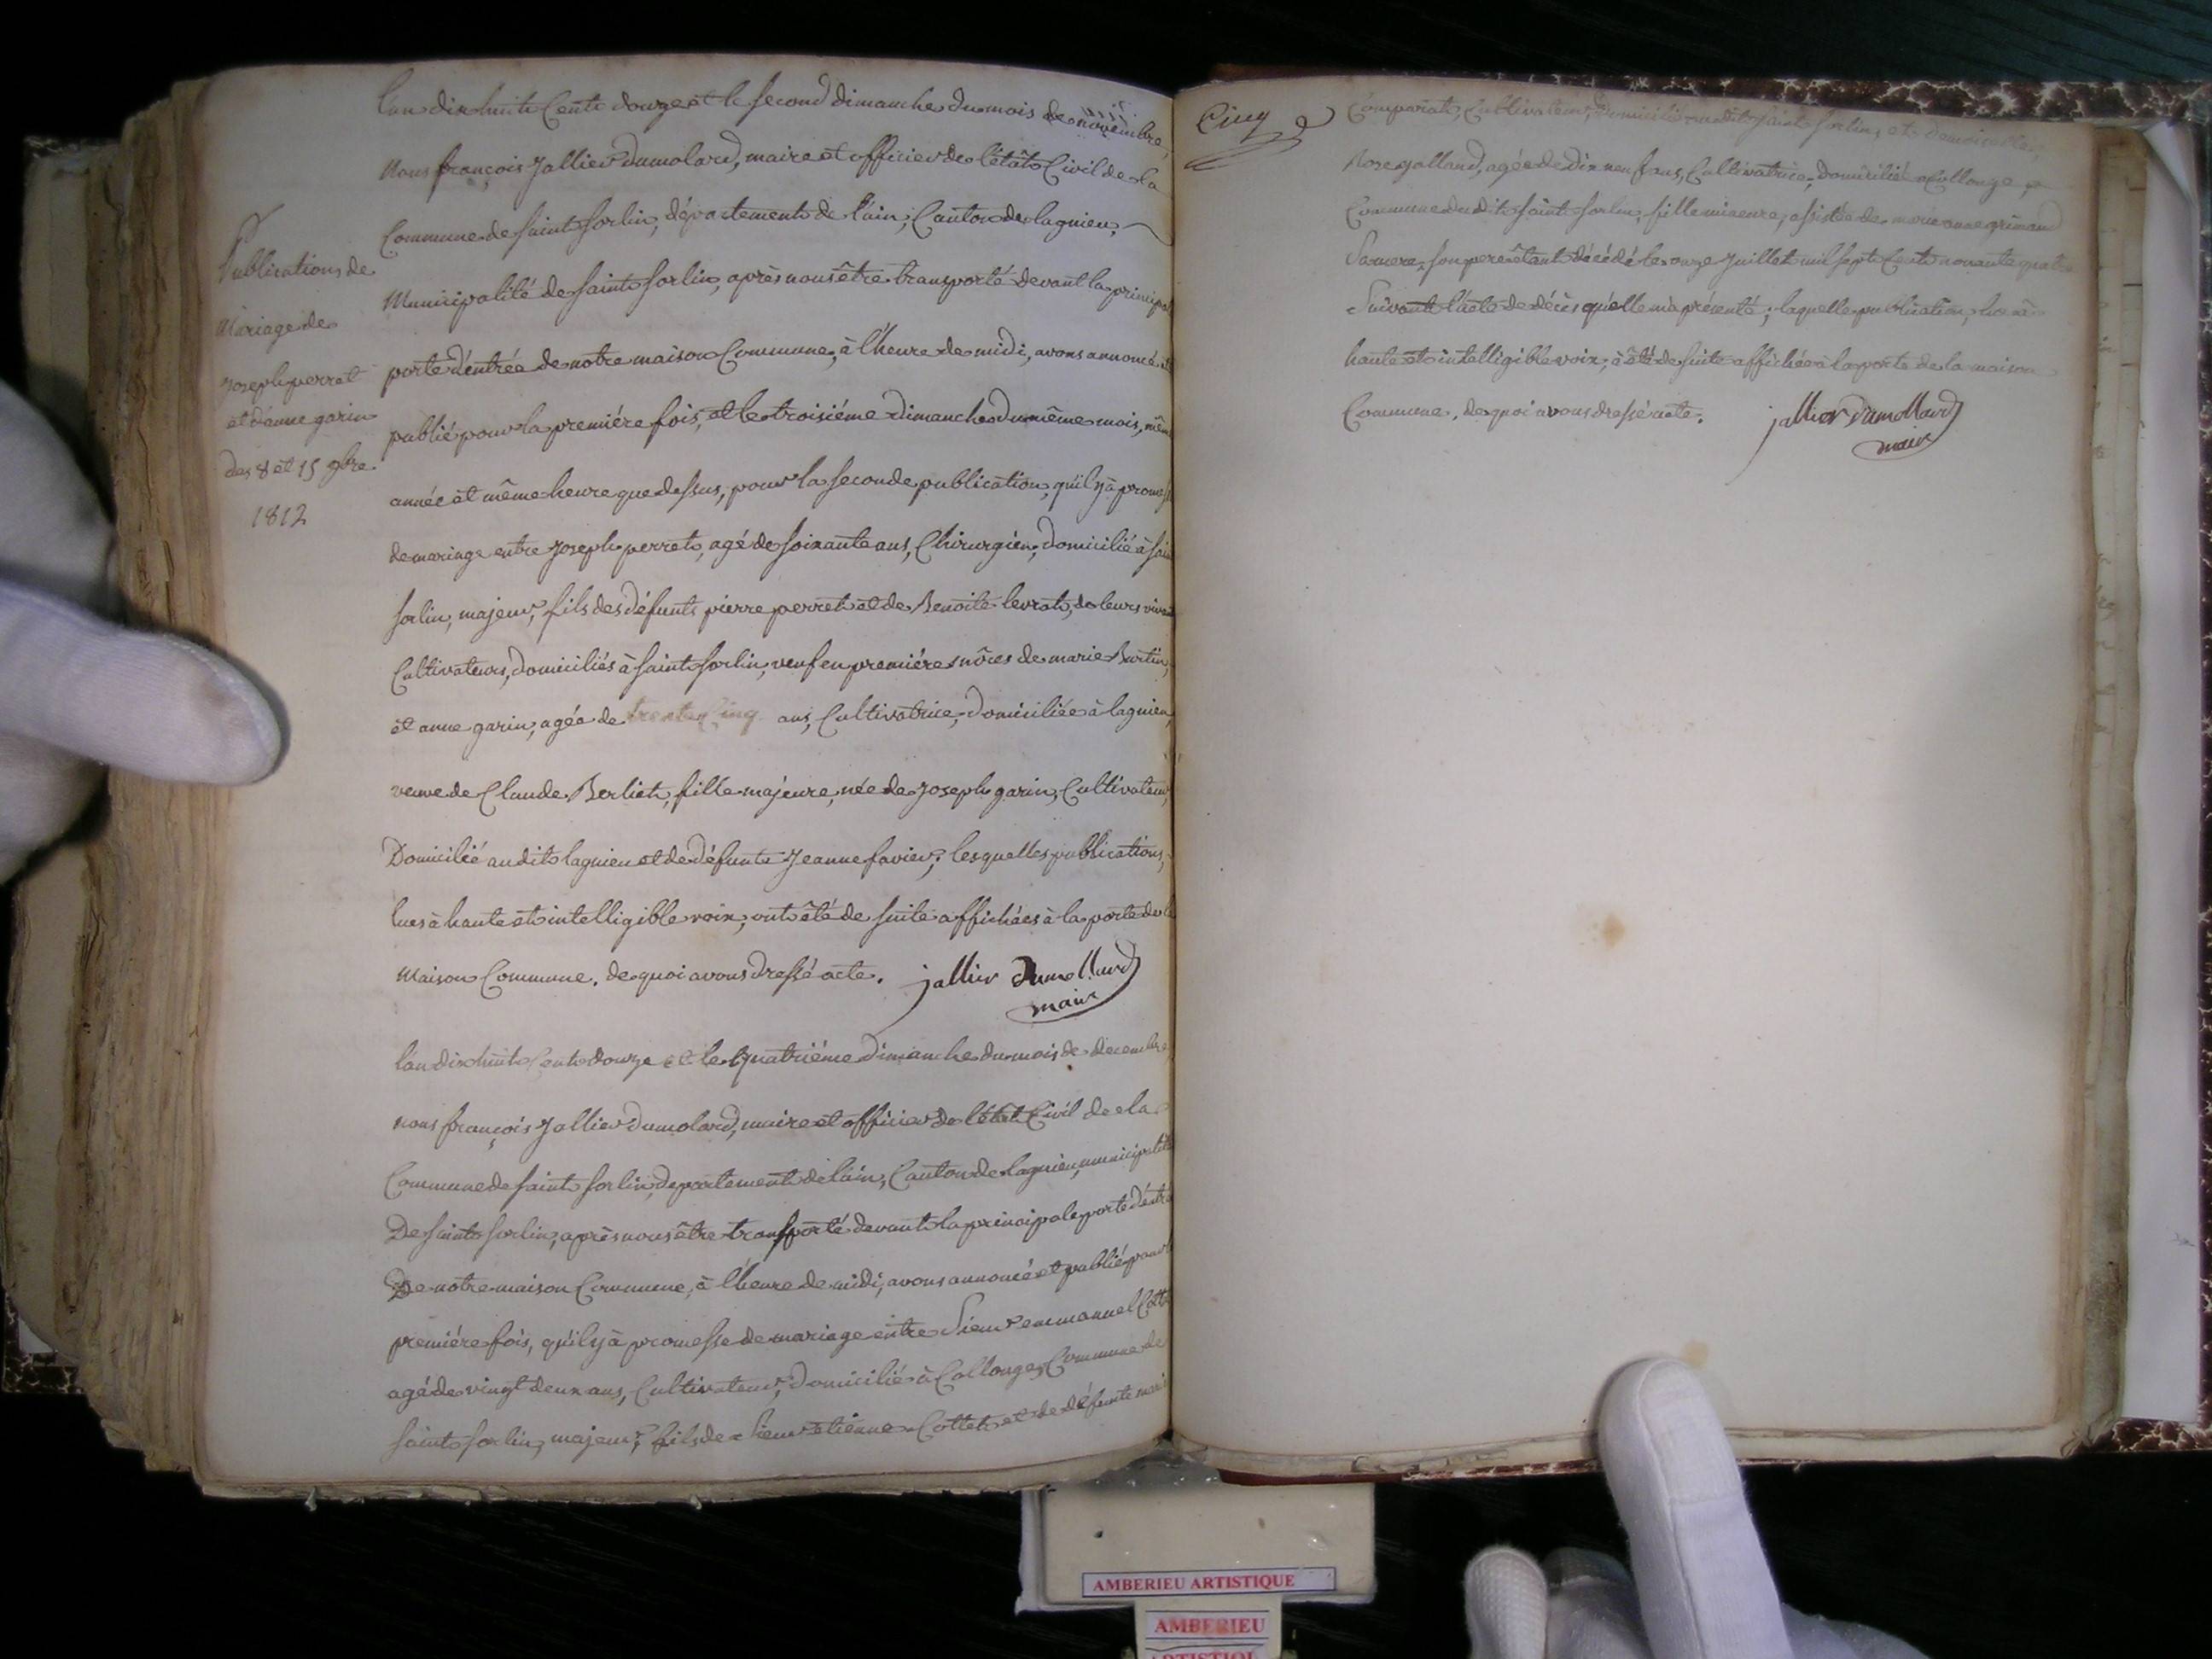 L'an dix huit Cent douze et le second dimanche du mois de novembre,
Nous françois Jallier Dumolard, maire et officier de l'êtât Civil de la
Commune de Saint Sorlin, département de l'ain, Canton de lagnieu,
Municipalité de Saint Sorlin, après nous être transporté devant la principal
porte d'entrée de notre maison Commune, à l'heure de midi, avons annoncé et
publié pour la premiére fois, et le troisiéme dimanche du même mois, mêm
année et même heure que dessus, pour la seconde publication, qu'il y à promess
de mariage entre Joseph perret, agé de soixante ans, Chirurgien, Domicilié à Sain
Sorlin, majeur, fils des défunts pierre perret et de Benoite levrat, de leurs vivan
Cultivateurs, Domiciliés à Saint Sorlin, veuf en premiéres nôces de marie Burtin,
et anne garin, agée de trente Cinq ans, Cultivatrice, Domiciliée à lagnieu,
veuve de Claude Berliet, fille majeure, née de Joseph garin, Cultivateur,
Domicilié audit lagnieu et de défunte Jeanne favier; lesquelles publications,
lues à haute et intelligible voix, ont êté de suite affichées à la porte de la
Maison Commune. de quoi avons dressé acte. jallier Dumollard
maire
Publications de
Mariage de
Joseph perret
et d'anne garin
des 8 et 15 9bre
1812
l'an dix huit Cent douze et le quatriéme Dimanche du mois de decembre
nous françois Jallier Dumolard, maire et officier de l'état Civil de la
Commune de Saint Sorlin, departement de l'ain, Canton de lagnieu, municipalité
De Saint Sorlin, après nous être transporté devant la principale porte d'entré
De notre maison Commune, à l'heure de midi, avons annoncé et publié pour l
premiére fois, qu'il y à promesse de mariage entre Sieur emmanuel Cotte
agé de vingt deux ans, Cultivateur, Domicilié à Collonge, Commune de
Saint Sorlin, majeur, fils de Sieur etienne Cottet et de défunte marie
Cinq
Comparat, Cultivateur, Domicilié audit Saint Sorlin, et Demoiselle
Rose Jolland, agée de Dix neuf ans, Cultivatrice, Domicilié à Collonge,
Commune dudit Saint Sorlin, fille mineure, assistée de marie anne grimand
Sa mere, son pere êtant décédé le onze Juillet mil sept Cent nonante quatre
Suivant l'acte de décès qu'elle m'a présenté; laquelle publication, lue à
haute et intelligible voix, à êté de suite affichée à la porte de la maison
Commune. de quoi avons dressé acte. jallier Dumollard
maire
AMBERIEU ARTISTIQUE
AMBERIEU
ARTISTIQUE